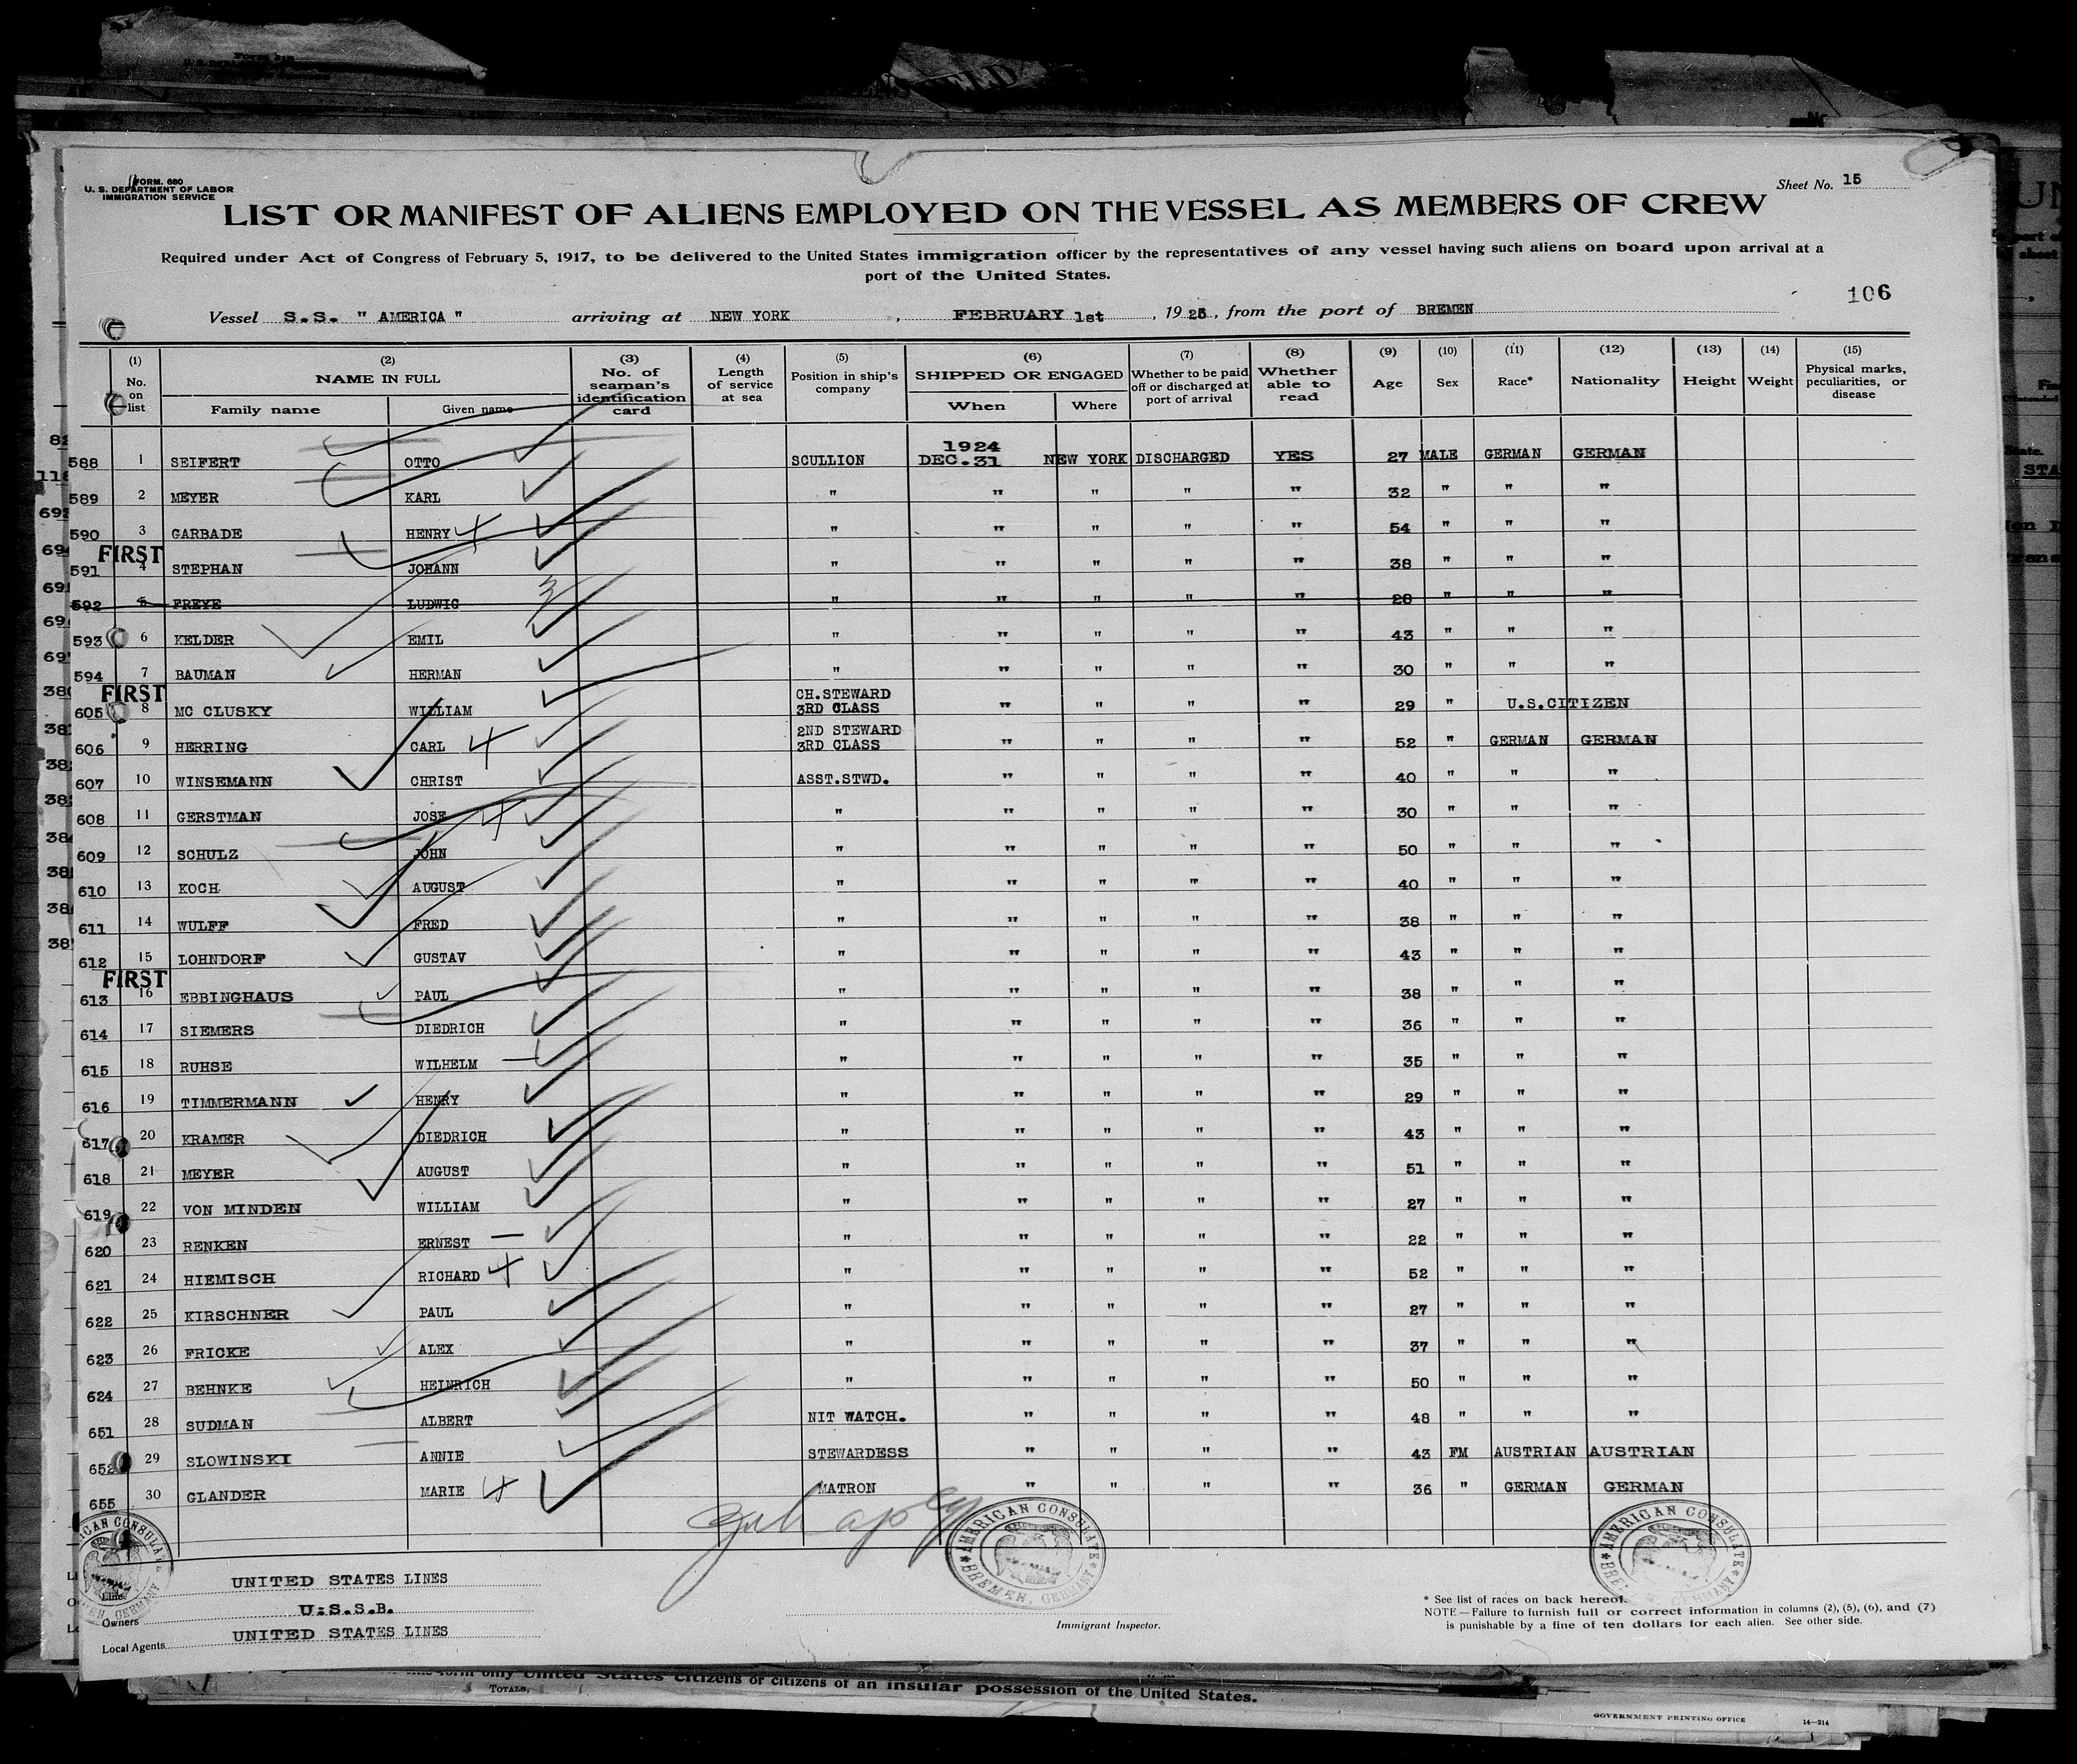 FORM. 680
U. S. DEPARTMENT OF LABOR
IMMIGRATION SERVICE
Sheet No. 15
LIST OR MANIFEST OF ALIENS EMPLOYED ON THE VESSEL AS MEMBERS OF CREW
Required under Act of Congress of February 5, 1917, to be delivered to the United States immigration officer by the representatives of any vessel having such aliens on board upon arrival at a
port of the United States.
106
Vessel S.S. " AMERICA " arriving at NEW YORK , FEBRUARY 1st , 1925, from the port of BREMEN
(1) (2) (3) (4) (5) (6) (7) (8) (9) (10) (11) (12) (13) (14) (15)
No. on list NAME IN FULL Family name Given name No. of seaman's identification card Length of service at sea Position in ship's company SHIPPED OR ENGAGED When Where Whether to be paid off or discharged at port of arrival Whether able to read Age Sex Race* Nationality Height Weight Physical marks, peculiarities, or disease
1924
588 1 SEIFERT OTTO SCULLION DEC.31 NEW YORK DISCHARGED YES 27 MALE GERMAN GERMAN
589 2 MEYER KARL " " " " " 32 " " "
590 3 GARBADE HENRY " " " " " 54 " " "
FIRST
591 4 STEPHAN JOHANN " " " " " 38 " " "
592 5 FREYE LUDWIG " " " " " 28 " " "
593 6 KELDER EMIL " " " " " 43 " " "
594 7 BAUMAN HERMAN " " " " " 30 " " "
FIRST
605 8 MC CLUSKY WILLIAM CH.STEWARD 3RD CLASS " " " " 29 " U.S.CITIZEN
606 9 HERRING CARL 2ND STEWARD 3RD CLASS " " " " 52 " GERMAN GERMAN
607 10 WINSEMANN CHRIST ASST.STWD. " " " " 40 " " "
608 11 GERSTMAN JOSE " " " " " 30 " " "
609 12 SCHULZ JOHN " " " " " 50 " " "
610 13 KOCH AUGUST " " " " " 40 " " "
611 14 WULFF FRED " " " " " 38 " " "
612 15 LOHNDORF GUSTAV " " " " " 43 " " "
FIRST
613 16 EBBINGHAUS PAUL " " " " " 38 " " "
614 17 SIEMERS DIEDRICH " " " " " 36 " " "
615 18 RUHSE WILHELM " " " " " 35 " " "
616 19 TIMMERMANN HENRY " " " " " 29 " " "
617 20 KRAMER DIEDRICH " " " " " 43 " " "
618 21 MEYER AUGUST " " " " " 51 " " "
619 22 VON MINDEN WILLIAM " " " " " 27 " " "
620 23 RENKEN ERNEST " " " " " 22 " " "
621 24 HIEMISCH RICHARD " " " " " 52 " " "
622 25 KIRSCHNER PAUL " " " " " 27 " " "
623 26 FRICKE ALEX " " " " " 37 " " "
624 27 BEHNKE HEINRICH " " " " " 50 " " "
651 28 SUDMAN ALBERT NIT WATCH. " " " " 48 " " "
652 29 SLOWINSKI ANNIE STEWARDESS " " " " 43 FM AUSTRIAN AUSTRIAN
655 30 GLANDER MARIE MATRON " " " " 36 " GERMAN GERMAN
AMERICAN CONSULATE BREMEN, GERMANY
AMERICAN CONSULATE
Line UNITED STATES LINES
Owners U.S.S.B.
Local Agents UNITED STATES LINES
Immigrant Inspector.
* See list of races on back hereof.
NOTE—Failure to furnish full or correct information in columns (2), (5), (6), and (7)
is punishable by a fine of ten dollars for each alien. See other side.
form only United States citizens or citizens of an insular possession of the United States.
TOTALS,
GOVERNMENT PRINTING OFFICE 14—214